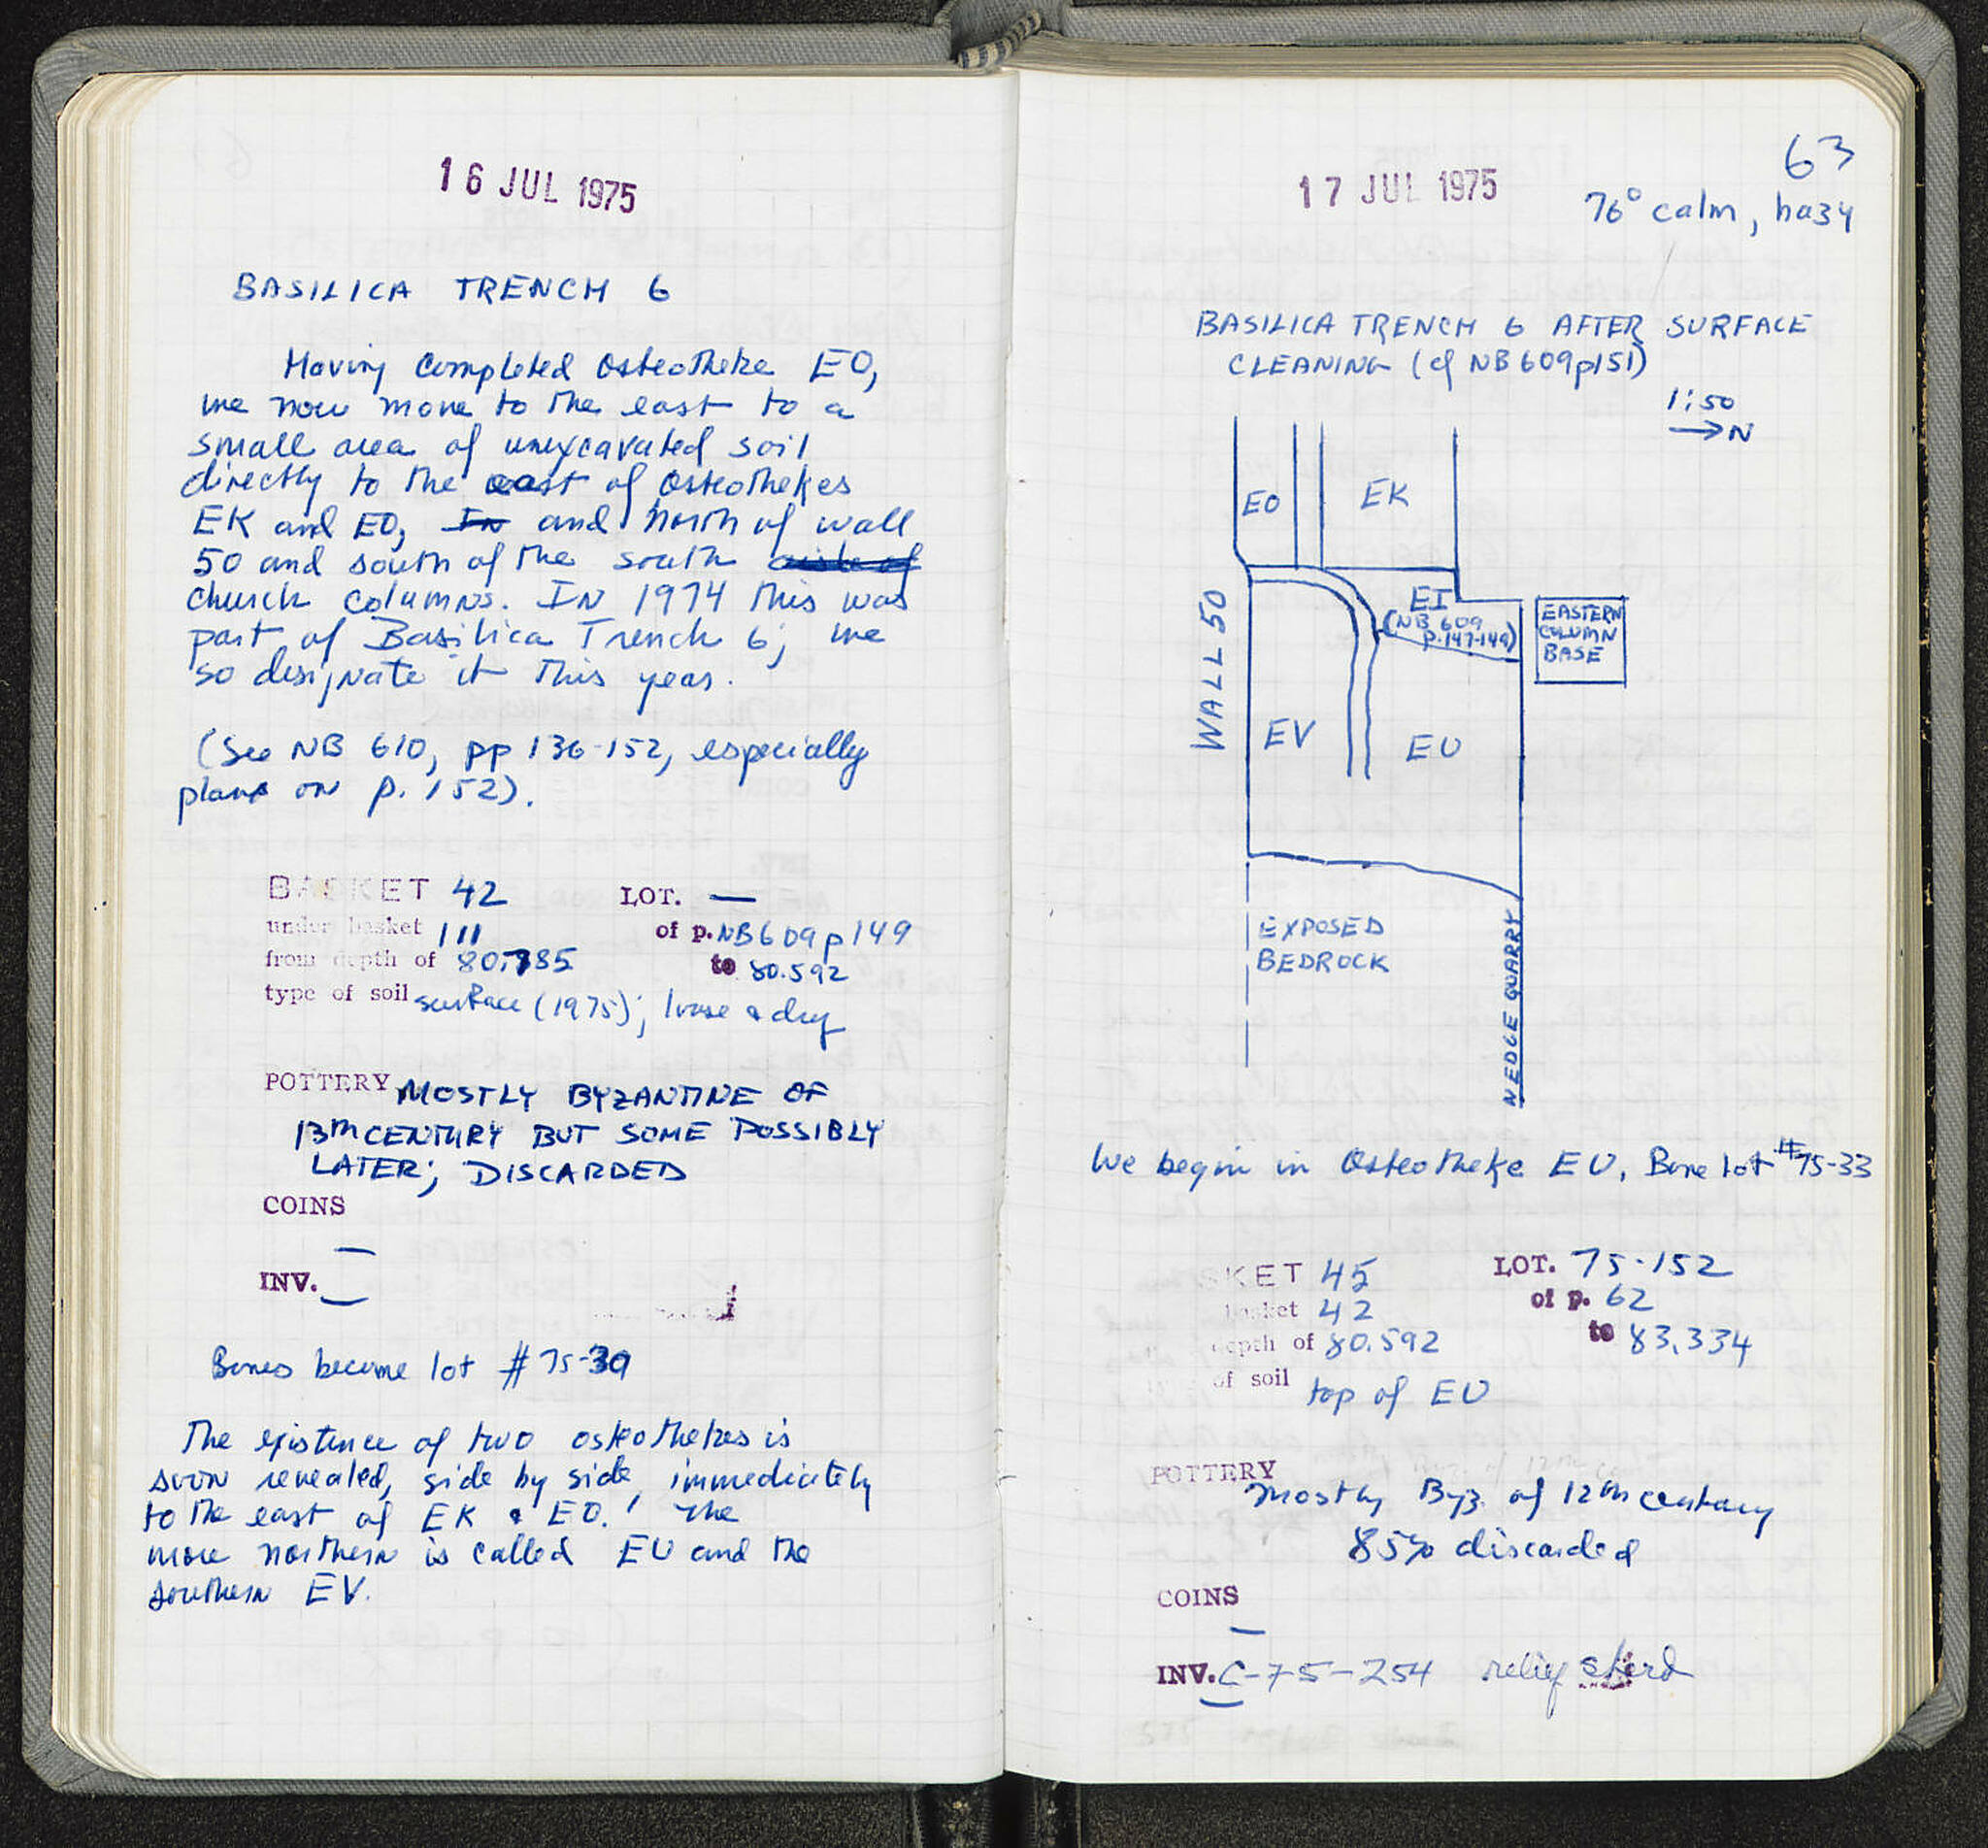 16 JUL 1975
BASILICA TRENCH 6
Having completed Osteotheke EO,
we now move to the east to a
small area of unexcavated soil
directly to the east of Osteothekes
EK and EO, In and north of wall
50 and south of the south aisle of
church columns. IN 1974 this was
part of Basilica Trench 6; we
so designate it this year.
(See NB 610, pp 136-152, especially
plans on p. 152).
BASKET 42 LOT. —
under basket 111 of p. NB609p149
from depth of 80.785 to 80.592
type of soil surface (1975); loose & dry
POTTERY MOSTLY BYZANTINE OF
13th CENTURY BUT SOME POSSIBLY
LATER; DISCARDED
COINS
—
INV. —
Bones become lot # 75-39
The existence of two osteothekes is
soon revealed, side by side, immediately
to the east of EK & EO. The
more northern is called EU and the
southern EV.
63
17 JUL 1975
76° calm, hazy
BASILICA TRENCH 6 AFTER SURFACE
CLEANING (cf NB609p151)
1:50
→N
EO
EK
EI
(NB 609
P.147-149)
EASTERN
COLUMN
BASE
WALL 50
EV
EU
EXPOSED
BEDROCK
WEDGE QUARRY
We begin in Osteotheke EU, Bone lot #75-33
SKET 45 LOT. 75-152
basket 42 of p. 62
depth of 80.592 to 83.334
of soil top of EU
POTTERY
Mostly Byz. of 12th century
85% discarded
COINS
—
INV. C-75-254 relief sherd